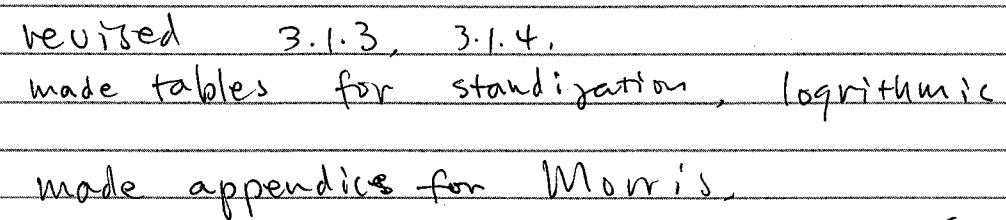 revised 3.1.3, 3.1.4.
made tables for standization, logrithmic
made appendics for Morris.